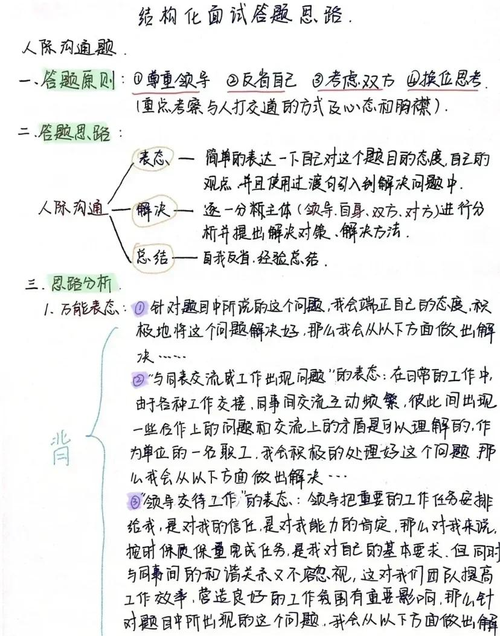 结构化面试答题思路.
人际沟通题.
一、答题原则: ①尊重领导 ②反省自己 ③考虑双方 ④换位思考.
(重点考察与人打交道的方式及心态和胸襟).
二.答题思路:
人际沟通
表态 — 简单的表达一下自己对这个题目的态度,自己的
观点,并且使用过渡句引入到解决问题中.
解决 — 逐一分析主体(领导.自身.双方.对方)进行分
析并提出解决对策、解决方法.
总结 — 自我反省.经验总结.
三.思路分析.
1.万能表态: ①针对题目中所说的这个问题,我会端正自己的态度,积
极地将这个问题解决好,那么我会从以下方面做出解
决……
背
②"与同事交流或工作出现问题"的表态:在日常的工作中,
由于各种工作交接,同事间交流互动频繁,彼此间出现
一些合作上的问题和交流上的矛盾是可以理解的,作
为单位的一名职工,我会积极的处理好这个问题.那
么我会从以下方面做出解决…
③"领导交待工作"的表态:领导把重要的工作任务安排
给我,是对我的信任,是对我能力的肯定,那么对我来说,
按时保质保量完成任务,是我对自己的基本要求.但同时
与同事间的和谐关系又不容忽视,这对我们团队提高
工作效率,营造良好的工作氛围有重要影响,那么针
对题目中所出现的这个问题,我会从以下方面做出解